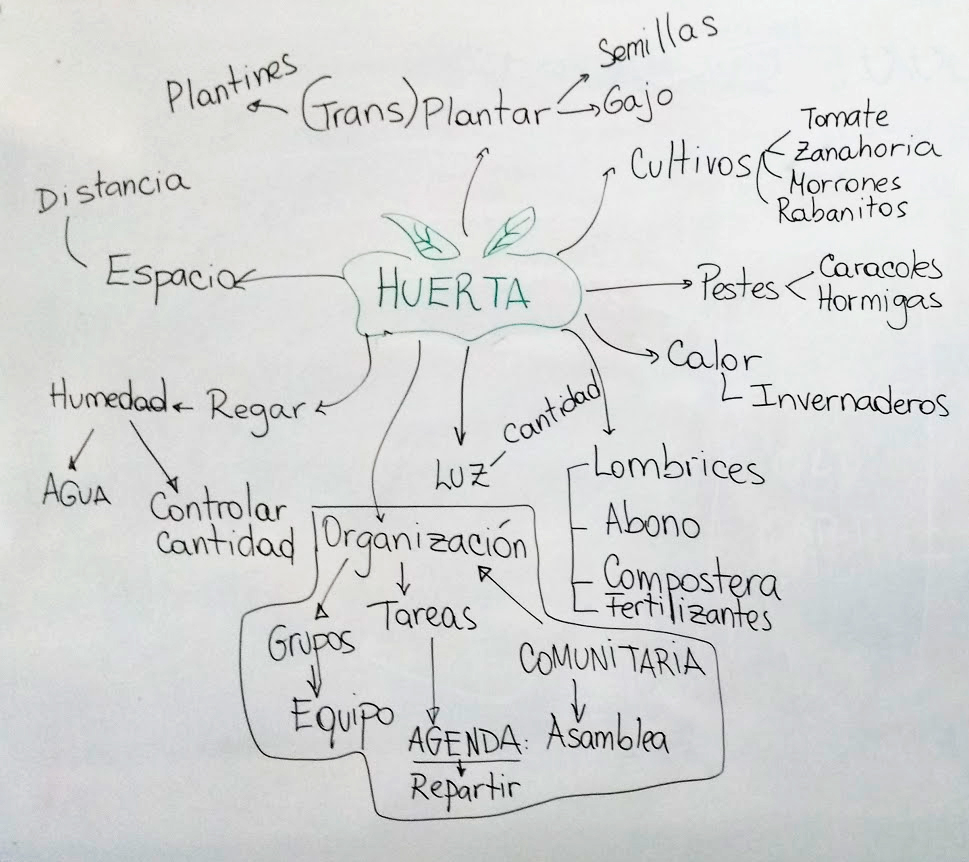 Semillas
Plantines
(Trans)Plantar
Gajo
Cultivos
Tomate
Zanahoria
Morrones
Rabanitos
Distancia
Espacio
HUERTA
Pestes
Caracoles
Hormigas
Calor
Invernaderos
Humedad
Regar
AGUA
Controlar
Cantidad
LUZ
Cantidad
Lombrices
Abono
Compostera
Fertilizantes
Organización
Grupos
Equipo
Tareas
AGENDA:
Repartir
COMUNITARIA
Asamblea